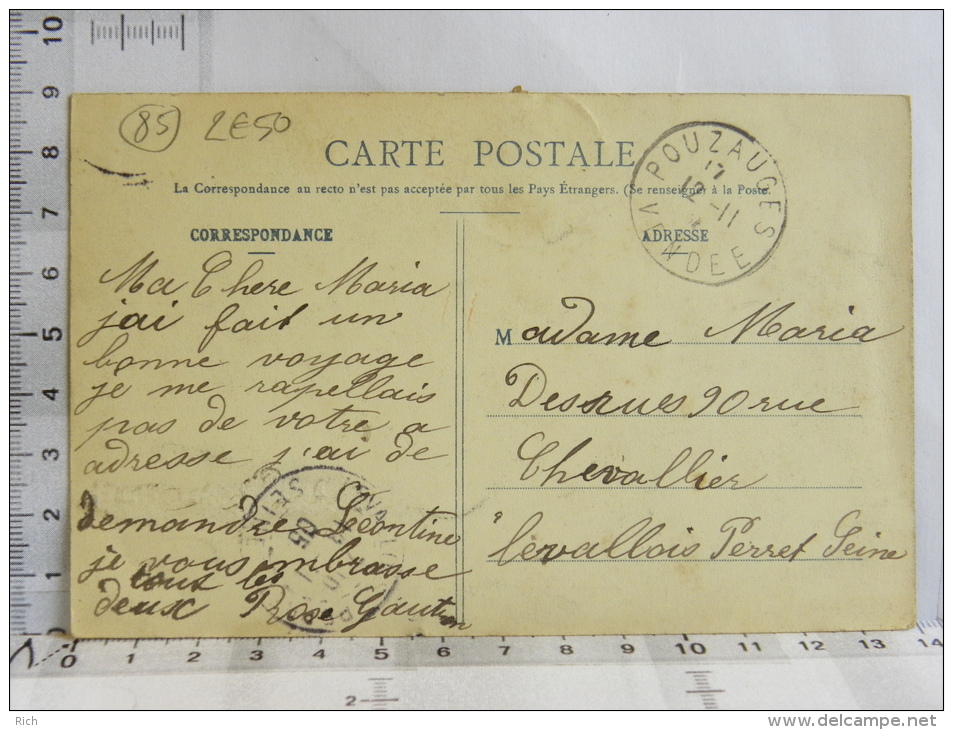 85 2E50
CARTE POSTALE
La Correspondance au recto n'est pas acceptée par tous les Pays Étrangers. (Se renseigner à la Poste.
POUZAUGES
17
12 -11
VENDEE
CORRESPONDANCE
Ma Chere Maria
jai fait un
bonne voyage
je me rapellais
pas de votre a
adresse j'ai de
demandre Leontine
je vous mbrasse
tout les
deux Rose Gautron
ADRESSE
Madame Maria
Desnues 90 rue
Chevallier
à levallois Perret Seine
10
9
8
7
6
5
4
3
2
1
0
0 1 2 3 4 5 6 7 8 9 10 11 12 13 14
2
Rich
www.delcampe.net